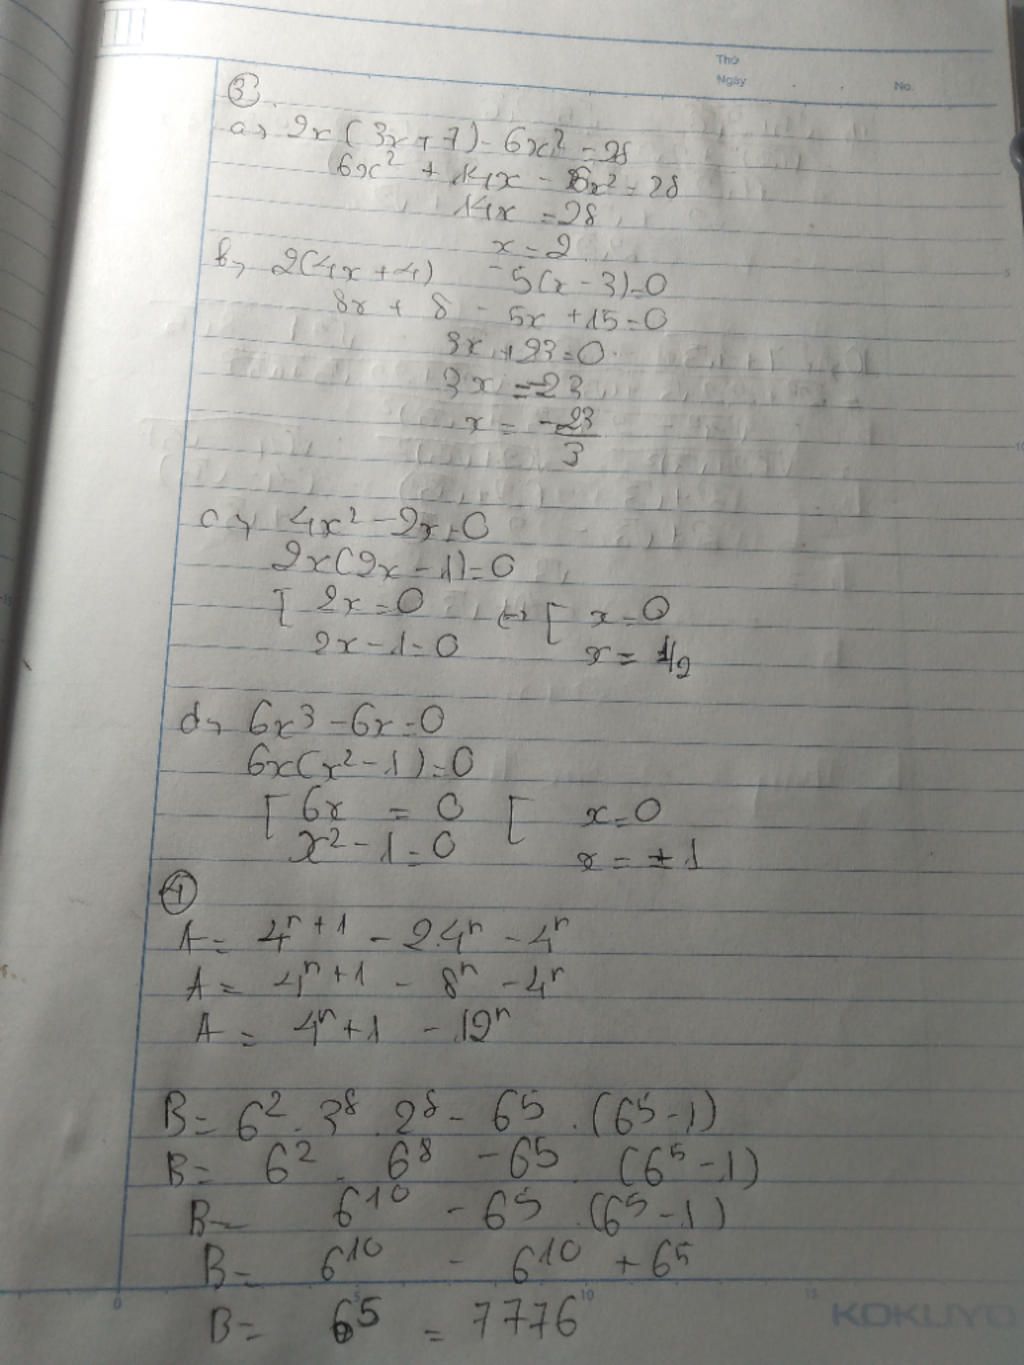 Thứ
Ngày
No.
③
a, 2x(3x+7)-6x²=28
6x² + 14x - 6x² = 28
14x = 28
x = 2
b, 2(4x+4) -5(x-3)=0
8x + 8 - 5x +15=0
3x +23=0
3x = -23
x = -23/3
c, 4x²-2x=0
2x(2x-1)=0
[ 2x=0 ↔ [ x=0
2x-1=0 x = 1/2
d, 6x³-6x=0
6x(x²-1)=0
[ 6x = 0 [ x=0
x²-1=0 x = ±1
④
A = 4ⁿ⁺¹ - 2.4ⁿ - 4ⁿ
A = 4ⁿ⁺¹ - 8ⁿ - 4ⁿ
A = 4ⁿ+1 - 12ⁿ
B = 6² . 3⁸ . 2⁸ - 6⁵ . (6⁵-1)
B = 6² . 6⁸ - 6⁵ . (6⁵-1)
B = 6¹⁰ - 6⁵ . (6⁵-1)
B = 6¹⁰ - 6¹⁰ + 6⁵
B = 6⁵ = 7776
0 5 10 15
KOKUYO